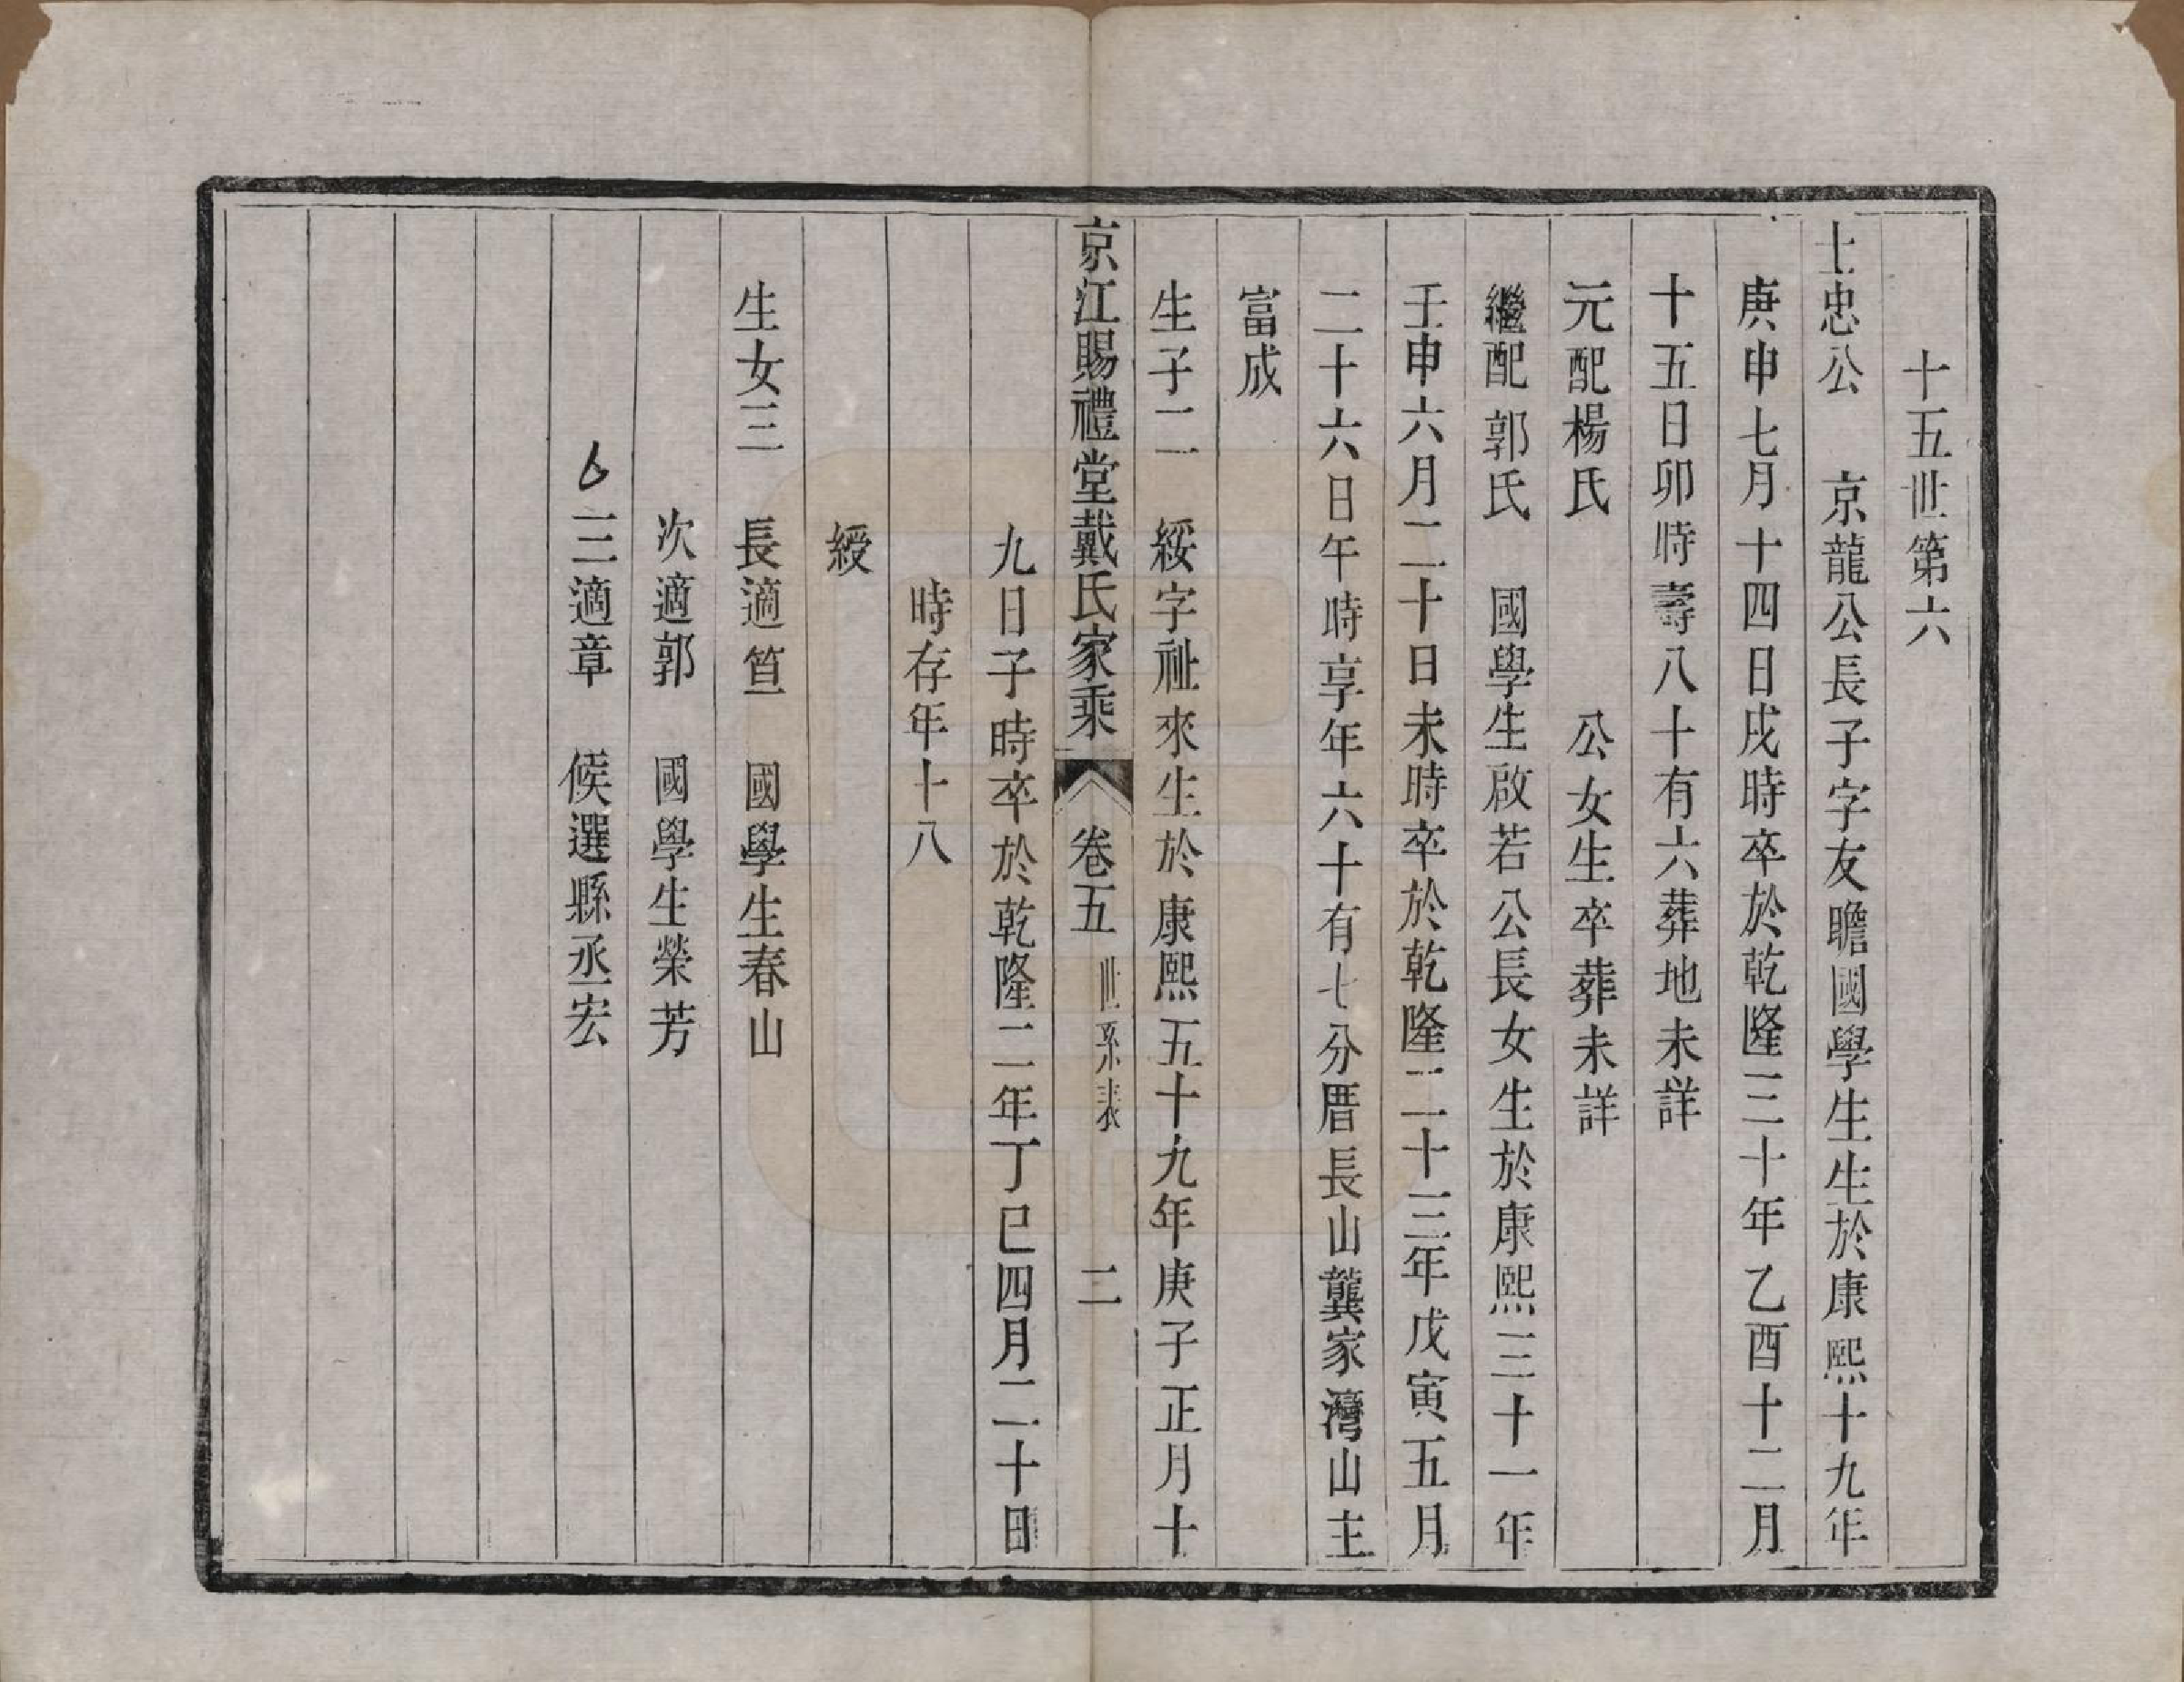 十五世第六
士忠公　京龍公長子字友瞻國學生生於康熙十九年
庚申七月十四日戌時卒於乾隆三十年乙酉十二月
十五日卯時壽八十有六葬地未詳
元配楊氏　公女生卒葬未詳
繼配郭氏　國學生啟若公長女生於康熙三十一年
壬申六月二十日未時卒於乾隆二十三年戊寅五月
二十六日午時享年六十有七分厝長山龔家灣山主
富成
生子二　綏字祉來生於康熙五十九年庚子正月十
京江賜禮堂戴氏家乘　卷五　世系表　二
九日子時卒於乾隆二年丁巳四月二十日
時存年十八
綬
生女三　長適笪　國學生春山
次適郭　國學生榮芳
三適章　候選縣丞宏